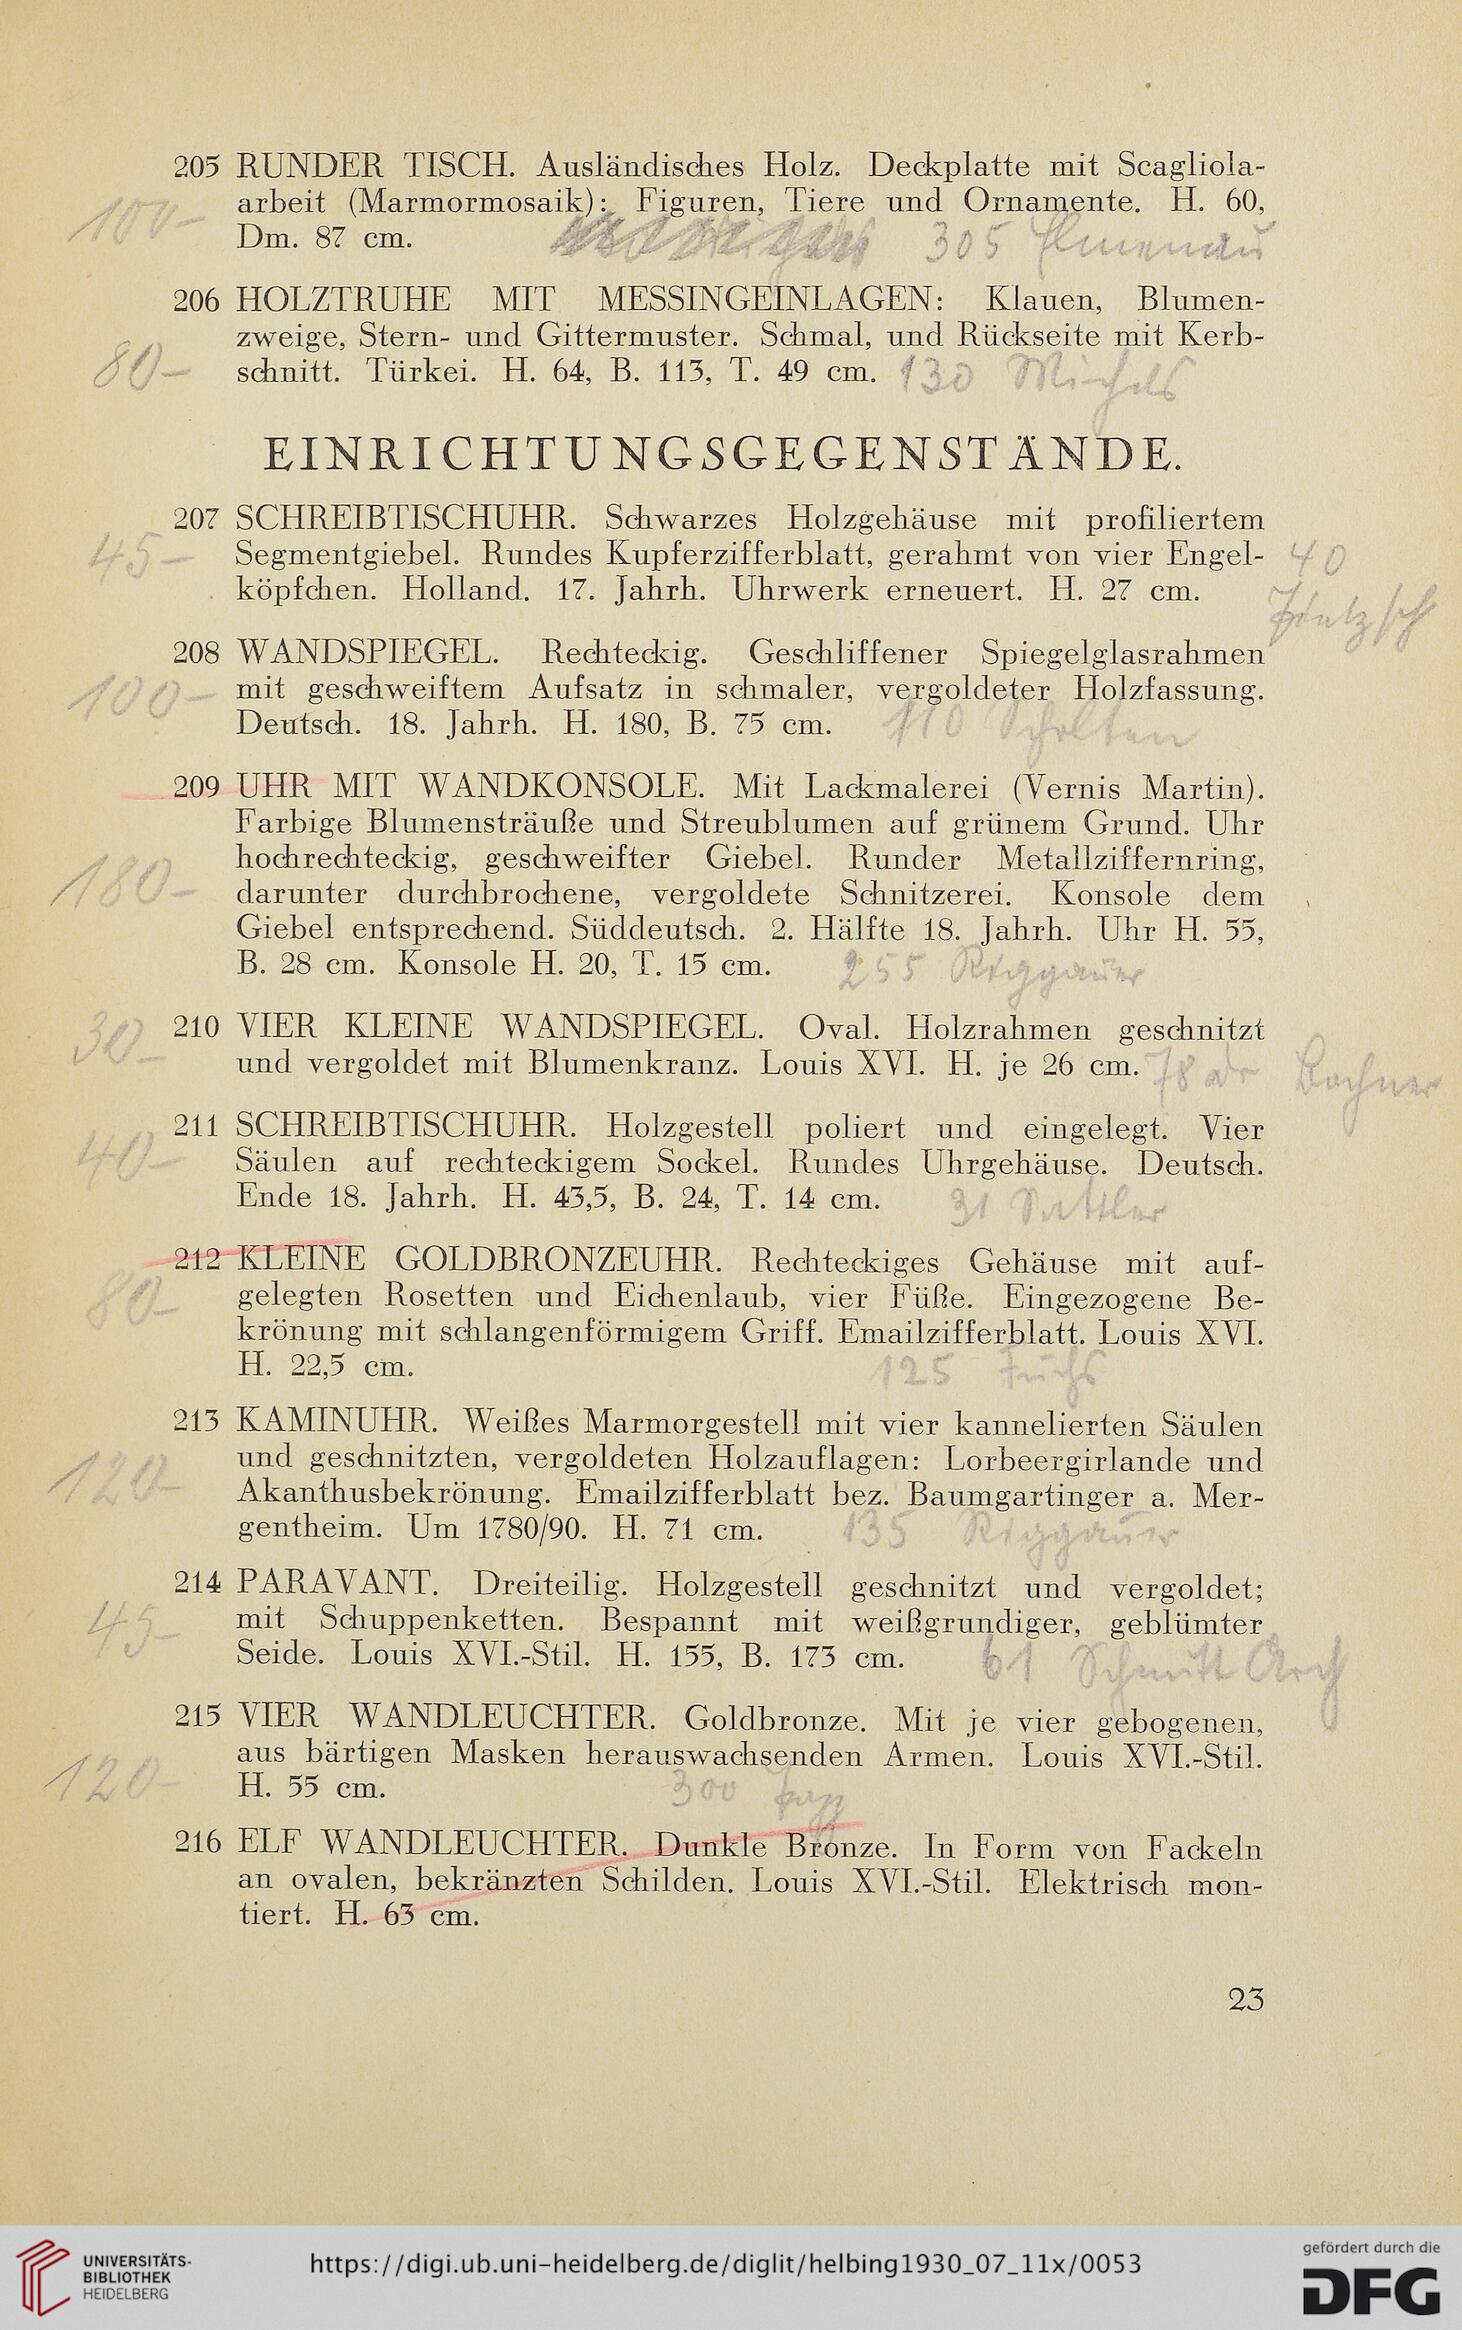 205 RUNDER TISCH. Ausländisches Holz. Deckplatte mit Scagliola-
100- arbeit (Marmormosaik): Figuren, Tiere und Ornamente. H. 60,
Dm. 87 cm. 305
206 HOLZTRUHE MIT MESSINGEINLAGEN: Klauen, Blumen-
zweige, Stern- und Gittermuster. Schmal, und Rückseite mit Kerb-
80- schnitt. Türkei. H. 64, B. 113, T. 49 cm. 130 Michels
EINRICHTUNGSGEGENSTÄNDE.
207 SCHREIBTISCHUHR. Schwarzes Holzgehäuse mit profiliertem
45- Segmentgiebel. Rundes Kupferzifferblatt, gerahmt von vier Engel- 40
köpfchen. Holland. 17. Jahrh. Uhrwerk erneuert. H. 27 cm.
208 WANDSPIEGEL. Rechteckig. Geschliffener Spiegelglasrahmen
100- mit geschweiftem Aufsatz in schmaler, vergoldeter Holzfassung.
Deutsch. 18. Jahrh. H. 180, B. 75 cm. 110 Scholten
209 UHR MIT WANDKONSOLE. Mit Lackmalerei (Vernis Martin).
Farbige Blumensträuße und Streublumen auf grünem Grund. Uhr
hochrechteckig, geschweifter Giebel. Runder Metallziffernring,
180- darunter durchbrochene, vergoldete Schnitzerei. Konsole dem
Giebel entsprechend. Süddeutsch. 2. Hälfte 18. Jahrh. Uhr H. 55,
B. 28 cm. Konsole H. 20, T. 15 cm. 255 Riggauer
30- 210 VIER KLEINE WANDSPIEGEL. Oval. Holzrahmen geschnitzt
und vergoldet mit Blumenkranz. Louis XVI. H. je 26 cm. 78
211 SCHREIBTISCHUHR. Holzgestell poliert und eingelegt. Vier
40- Säulen auf rechteckigem Sockel. Rundes Uhrgehäuse. Deutsch.
Ende 18. Jahrh. H. 43,5, B. 24, T. 14 cm. 31 Sattler
212 KLEINE GOLDBRONZEUHR. Rechteckiges Gehäuse mit auf-
80- gelegten Rosetten und Eichenlaub, vier Füße. Eingezogene Be-
krönung mit schlangenförmigem Griff. Emailzifferblatt. Louis XVI.
H. 22,5 cm. 125 Fuchs
213 KAMINUHR. Weißes Marmorgestell mit vier kannelierten Säulen
120- und geschnitzten, vergoldeten Holzauflagen: Lorbeergirlande und
Akanthusbekrönung. Emailzifferblatt bez. Baumgartinger a. Mer-
gentheim. Um 1780/90. H. 71 cm. 135 Riggauer
214 PARAVANT. Dreiteilig. Holzgestell geschnitzt und vergoldet;
45- mit Schuppenketten. Bespannt mit weißgrundiger, geblümter
Seide. Louis XVI.-Stil. H. 155, B. 173 cm. 61 Schmitt Arch
215 VIER WANDLEUCHTER. Goldbronze. Mit je vier gebogenen,
120- aus bärtigen Masken herauswachsenden Armen. Louis XVI.-Stil.
H. 55 cm. 300
216 ELF WANDLEUCHTER. Dunkle Bronze. In Form von Fackeln
an ovalen, bekränzten Schilden. Louis XVI.-Stil. Elektrisch mon-
tiert. H. 63 cm.
23
UNIVERSITÄTS-
BIBLIOTHEK
HEIDELBERG
https://digi.ub.uni-heidelberg.de/diglit/helbing1930_07_11x/0053
gefördert durch die
DFG